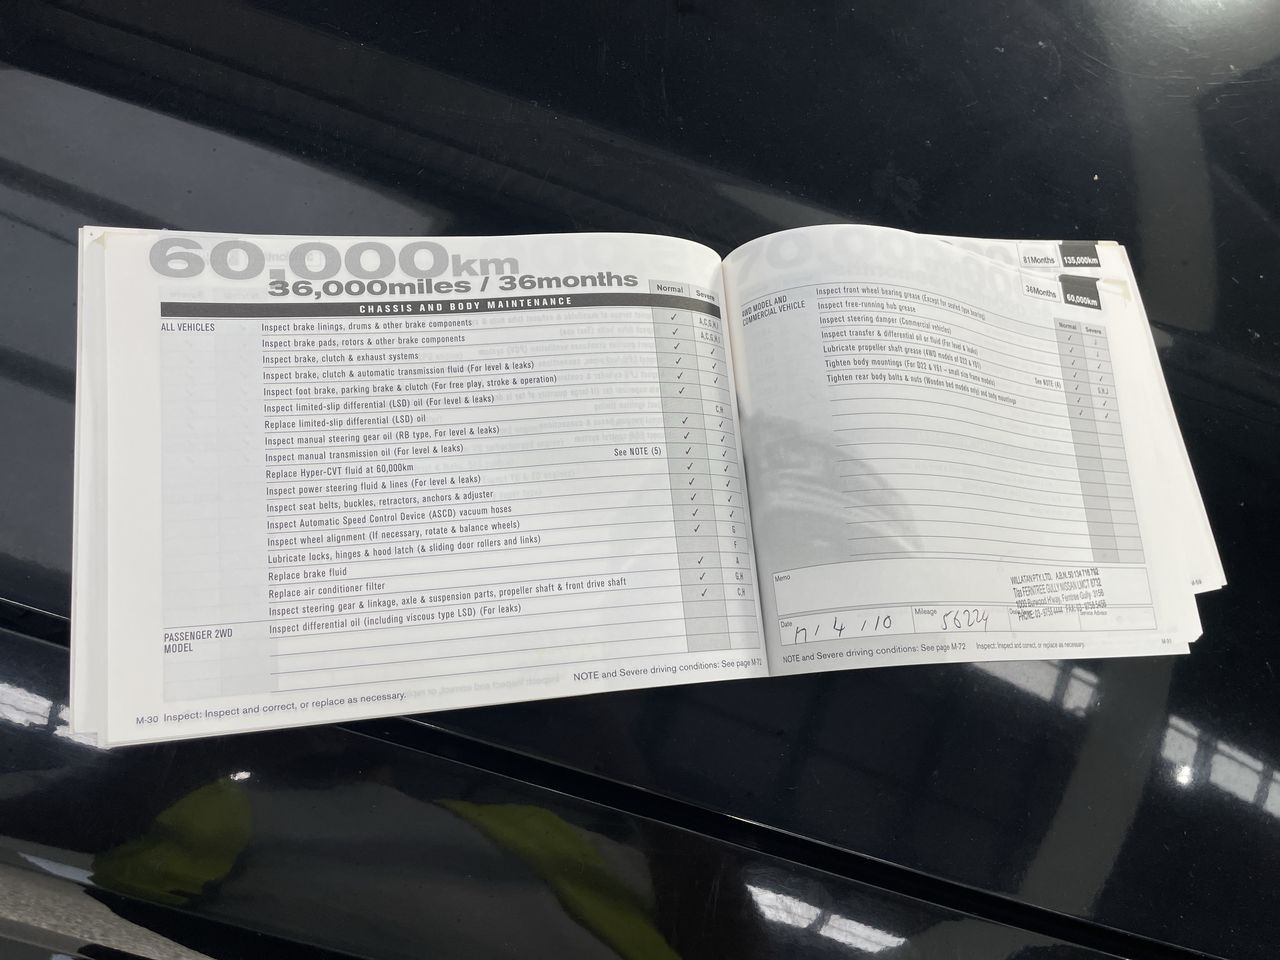 60,000km
36,000miles / 36months
CHASSIS AND BODY MAINTENANCE
Normal
Severe
ALL VEHICLES
Inspect brake linings, drums & other brake components ✓ A,C,G,H,I
Inspect brake pads, rotors & other brake components ✓ A,C,G,H,I
Inspect brake, clutch & exhaust systems ✓ ✓
Inspect brake, clutch & automatic transmission fluid (For level & leaks) ✓ ✓
Inspect foot brake, parking brake & clutch (For free play, stroke & operation) ✓ ✓
Inspect limited-slip differential (LSD) oil (For level & leaks) ✓
Replace limited-slip differential (LSD) oil C,H
Inspect manual steering gear oil (RB type, For level & leaks) ✓ ✓
Inspect manual transmission oil (For level & leaks) ✓ ✓
Replace Hyper-CVT fluid at 60,000km See NOTE (5) ✓ ✓
Inspect power steering fluid & lines (For level & leaks) ✓ ✓
Inspect seat belts, buckles, retractors, anchors & adjuster ✓ ✓
Inspect Automatic Speed Control Device (ASCD) vacuum hoses ✓ ✓
Inspect wheel alignment (If necessary, rotate & balance wheels) ✓ ✓
Lubricate locks, hinges & hood latch (& sliding door rollers and links) ✓ G
Replace brake fluid F
Replace air conditioner filter ✓ A
Inspect steering gear & linkage, axle & suspension parts, propeller shaft & front drive shaft ✓ G,H
PASSENGER 2WD
MODEL
Inspect differential oil (including viscous type LSD) (For leaks) ✓ C,H
NOTE and Severe driving conditions: See page M-72
M-30 Inspect: Inspect and correct, or replace as necessary.
81Months 135,000km
36Months 60,000km
Normal Severe
4WD MODEL AND
COMMERCIAL VEHICLE
Inspect front wheel bearing grease (Except for sealed type bearing)
Inspect free-running hub grease
Inspect steering damper (Commercial vehicles)
Inspect transfer & differential oil or fluid (For level & leaks)
Lubricate propeller shaft grease (4WD models of D22 & Y61)
Tighten body mountings (For D22 & Y61 – small size frame models) See NOTE (4)
Tighten rear body bolts & nuts (Wooden bed models only) and body mountings
G,H,J
Memo
WILLATAN PTY.LTD. A.B.N. 50 134 716 792
T/as FERNTREE GULLY NISSAN LMCT 8732
1009 Burwood H'way, Ferntree Gully 3156
Date 17 / 4 / 10
Mileage 56224
Service Advisor
NOTE and Severe driving conditions: See page M-72 Inspect: Inspect and correct, or replace as necessary.
M-31